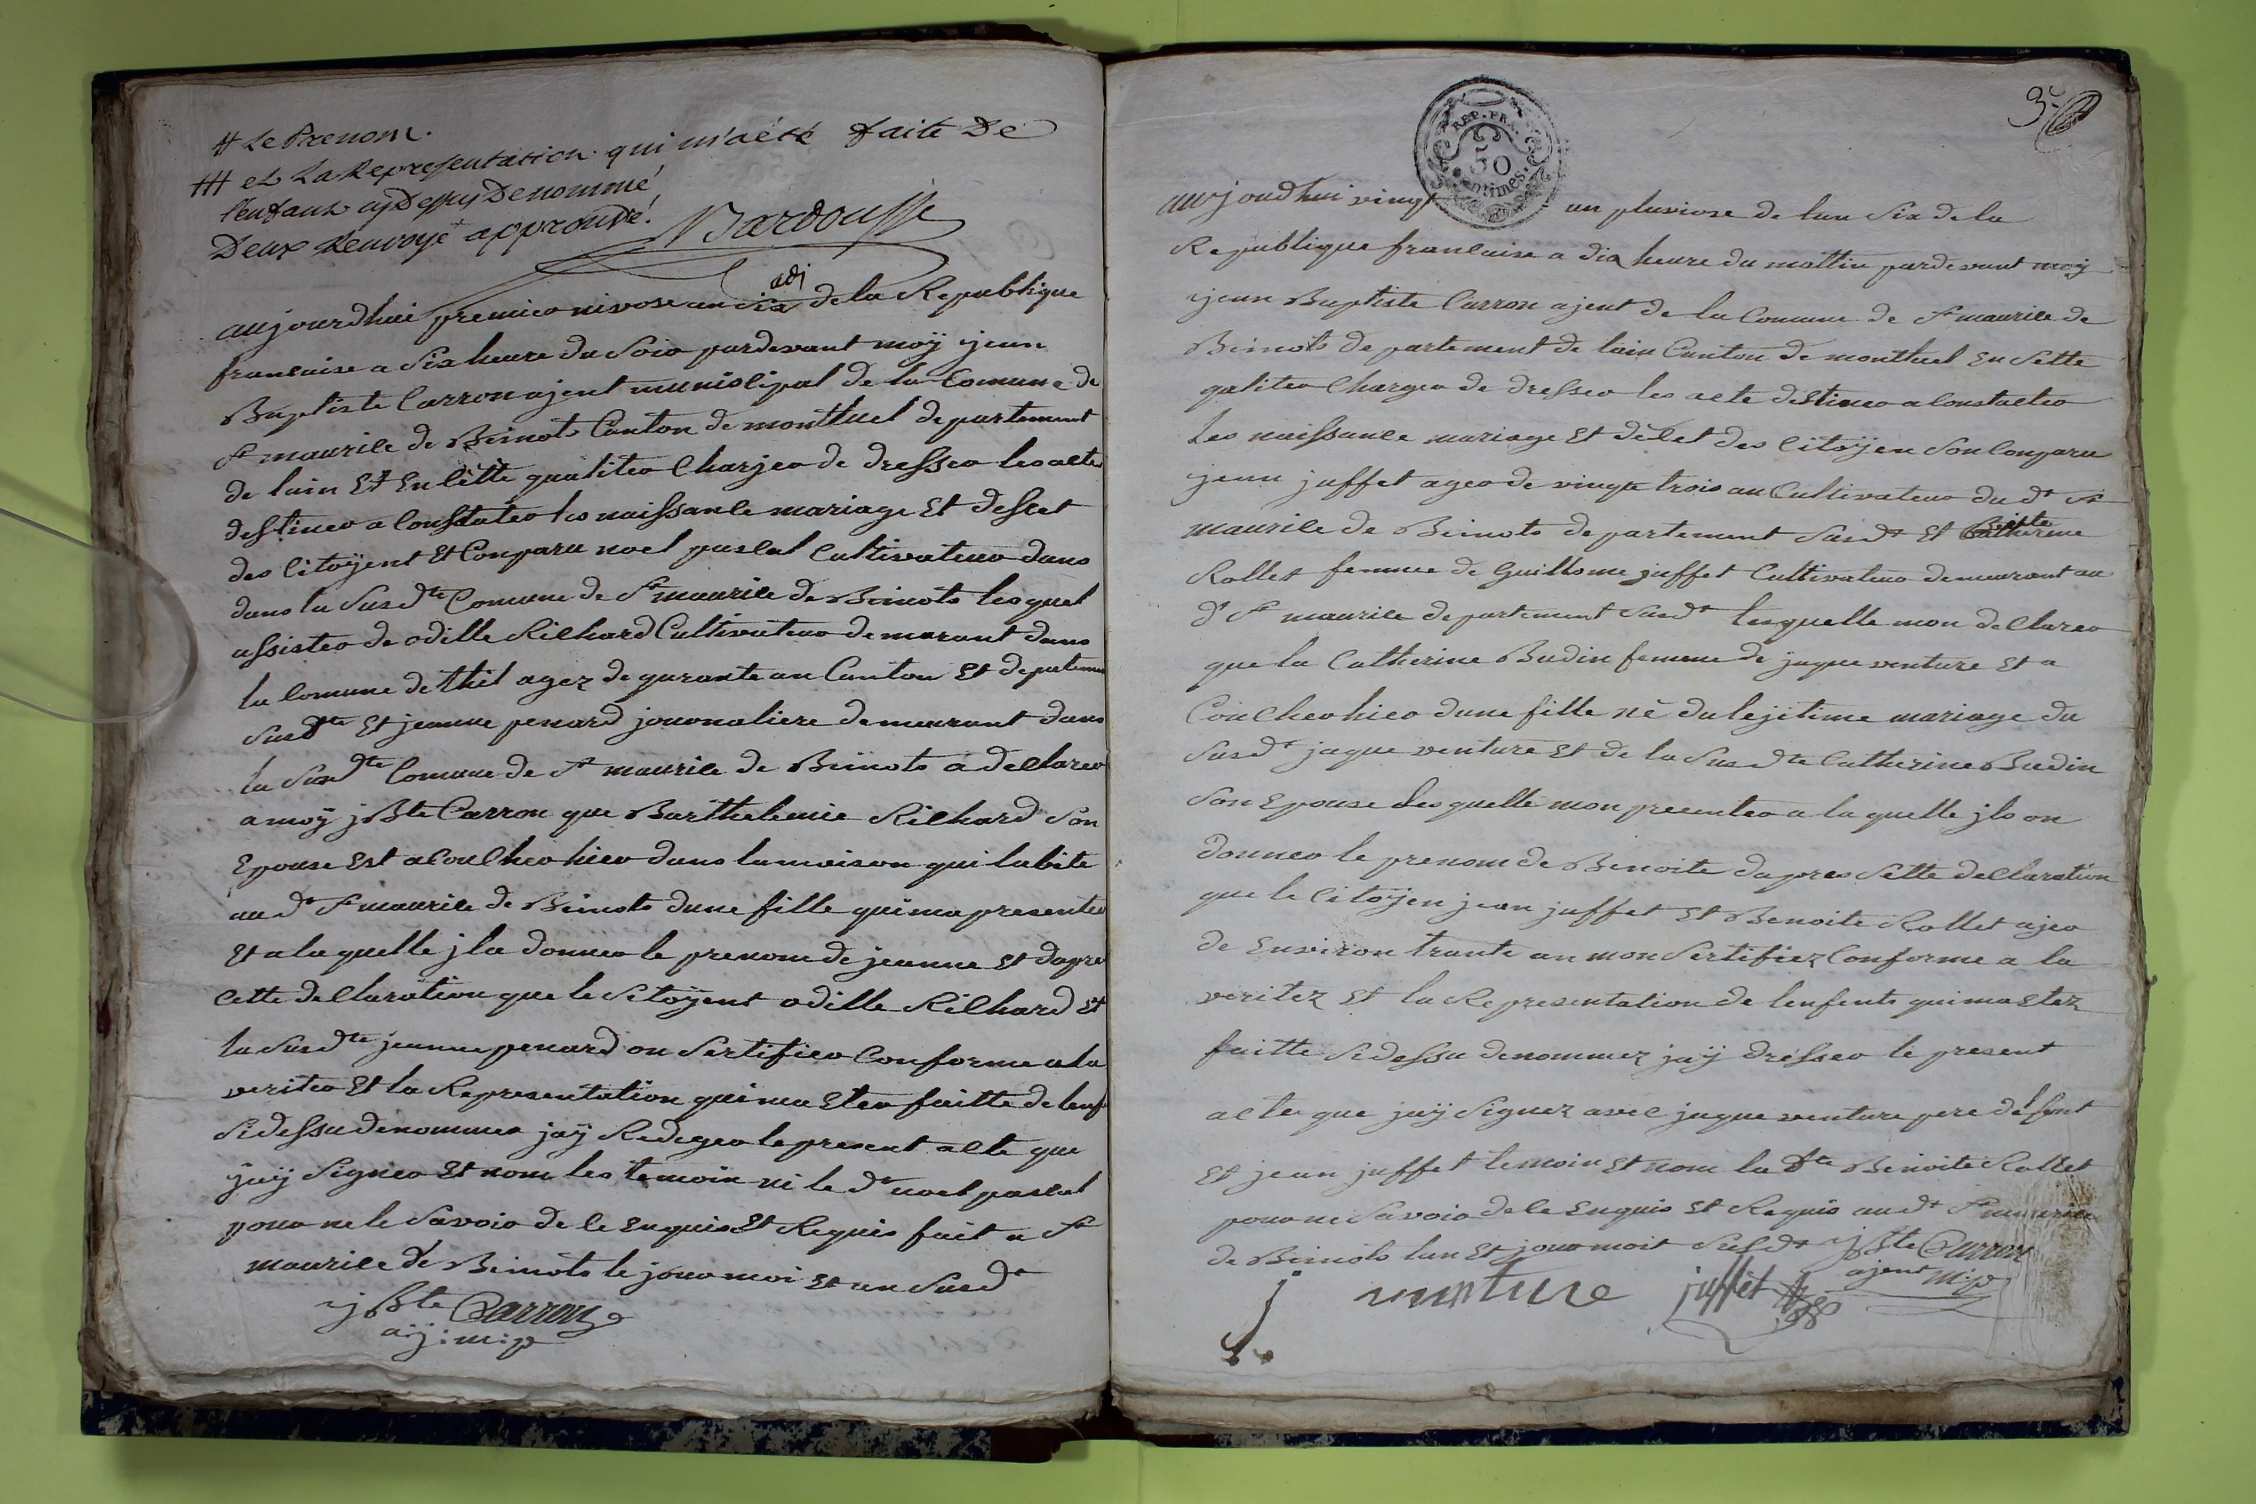 # Le Prenom.
## et La Representation qui m'a été faite De
l'enfant cy Dessus Denommé
Deux Renvoye approuvé. Bardousse
adj
aujourdhui premier nivose an six de la Republique
francaise a Six heure du Soir pardevant moÿ jean
Baptiste Carron ajent municipal de la Comune de
St maurice de Beinots Canton de montluel departement
de lain Et En Cette qualiter Charjer de dresser les acte
destiner a Constater les naissance mariage Et descet
des Citoÿent Et Conparu noel pascal Cultivateur dans
dans la Susdte Comune de St maurice de Beinots les quel
assister de odille Richard Cultivateur demeurant dans
la Comune de thil agez de garante an Canton Et departemen
Susdte Et jeanne penard journaliere demeurant dans
la Susdte Comune de St maurice de Beinots a declarer
a moÿ j Bte Carron que Barthelemie Richard Son
Epouse Est acoucher hier dans la maison qui labite
au dt St maurice de Beinots dune fille quima presenter
Et a la quelle j la donner le prenom de jeanne Et dapre
Cette declaration que le Sitoÿent odille Richard Et
la Susdte jeanne penard on Sertifier Conforme a la
veriter Et la Representation quima Eter faitte de lenf
Sidessu denommer jaÿ Rediger le present acte que
jaÿ Signer Et nom les temoin ni le dt noel pascal
pour ne le Savoir de le Enquis Et Requis fait a St
maurice de Beinots le jour moi Et an Susdt
j Bte Carron
aj: m: p
3e
REP. FRA.
50
centimes.
aujourdhui vingt un pluviose de lan Six de la
Republique francaise a dix heure du mattin pardevant moÿ
jean Baptiste Carron ajent de la Comune de St maurice de
Beinots departement de lain Canton de montluel En Sette
qaliter Charger de dresser les acte destiner a Constacter
Les naissance mariage Et décet des Citoÿen Son Conparu
jean juffet ager de vingte trois an Cultivateur du dt St
maurice de Beinots departement Susdt Et Catherine
Rollet femme de Guillome juffet Cultivateur demeurant au
dt St maurice departement Susdt lesquelle mon declarer
que la Catherine Budin femme de jaque venture Et a
Coucher hier dune fille né du lejitime mariage du
Susdt jaque venture Et de la Susdte Catherine Budin
Son Epouse Lesquelle mon presenter a la quelle jls on
donner le prenom de Benoite dapres Sette declaration
que le Citoÿen jean juffet Et Benoite Rollet ajer
de Environ trante an mon Sertifiez Conforme a la
veritez Et la Representation de lenfents quima Etez
faitte Sidessu denommez jaÿ dresser le present
acte que jaÿ Signez avec jaque venture pere
Et jean juffet temoin Et nom la dte Benoite Rollet
pour ne Savoir de le Enquis Et Requis au dt St maurice
de Beinots lan Et jour moit Susdt j Bte Carron
ajent M: p
j venture juffet